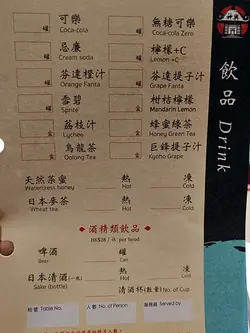 飲品 Drink
罐 可樂 罐 無糖可樂
Coca-cola Coca-cola Zero
罐 忌廉 罐 檸檬+C
Cream soda Lemon +C
罐 芬達橙汁 罐 芬達提子汁
Orange Fanta Grape Fanta
罐 雪碧 盒 柑桔檸檬
Sprite Mandarin Lemon
盒 荔枝汁 盒 蜂蜜綠茶
Lychee Honey Green Tea
盒 烏龍茶 盒 巨鋒提子汁
Oolong Tea Kyoho Grape
天然茶蜜 熱 凍
Hot Cold
日本麥茶 熱 凍
Wheat tea Hot Cold
酒精類飲品
HK$28 / 位 per head
啤酒 罐
Beer Can
日本清酒(一瓶) 熱 凍
Sake (bottle) Hot Cold
清酒杯(數量) No. of Cup
檯號 Table No. 人數 No. of Person 服務員 Served by